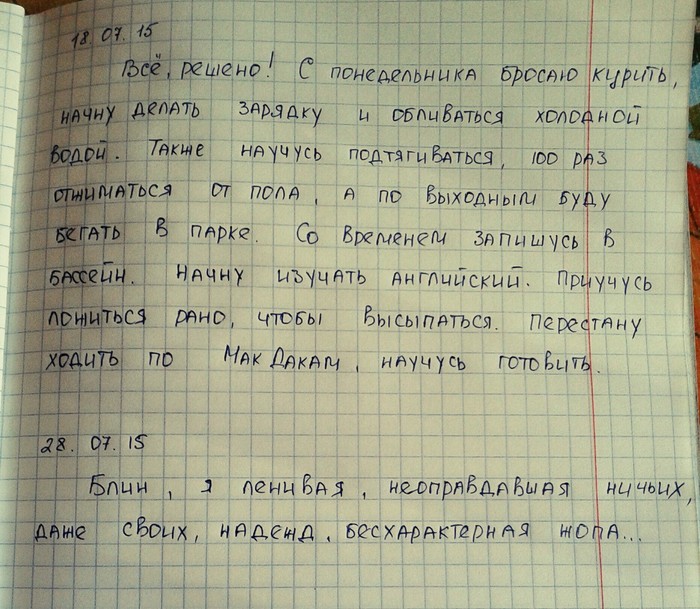 18.07.15
Всё, решено! С понедельника бросаю курить,
начну делать зарядку и обливаться холодной
водой. Также научусь подтягиваться, 100 раз
отжиматься от пола, а по выходным буду
бегать в парке. Со временем запишусь в
бассейн. Начну изучать английский. Приучусь
ложиться рано, чтобы высыпаться. Перестану
ходить по МакДакам, научусь готовить.
28.07.15
Блин, я ленивая, неоправдавшая ничьих,
даже своих, надежд, бесхарактерная жопа...